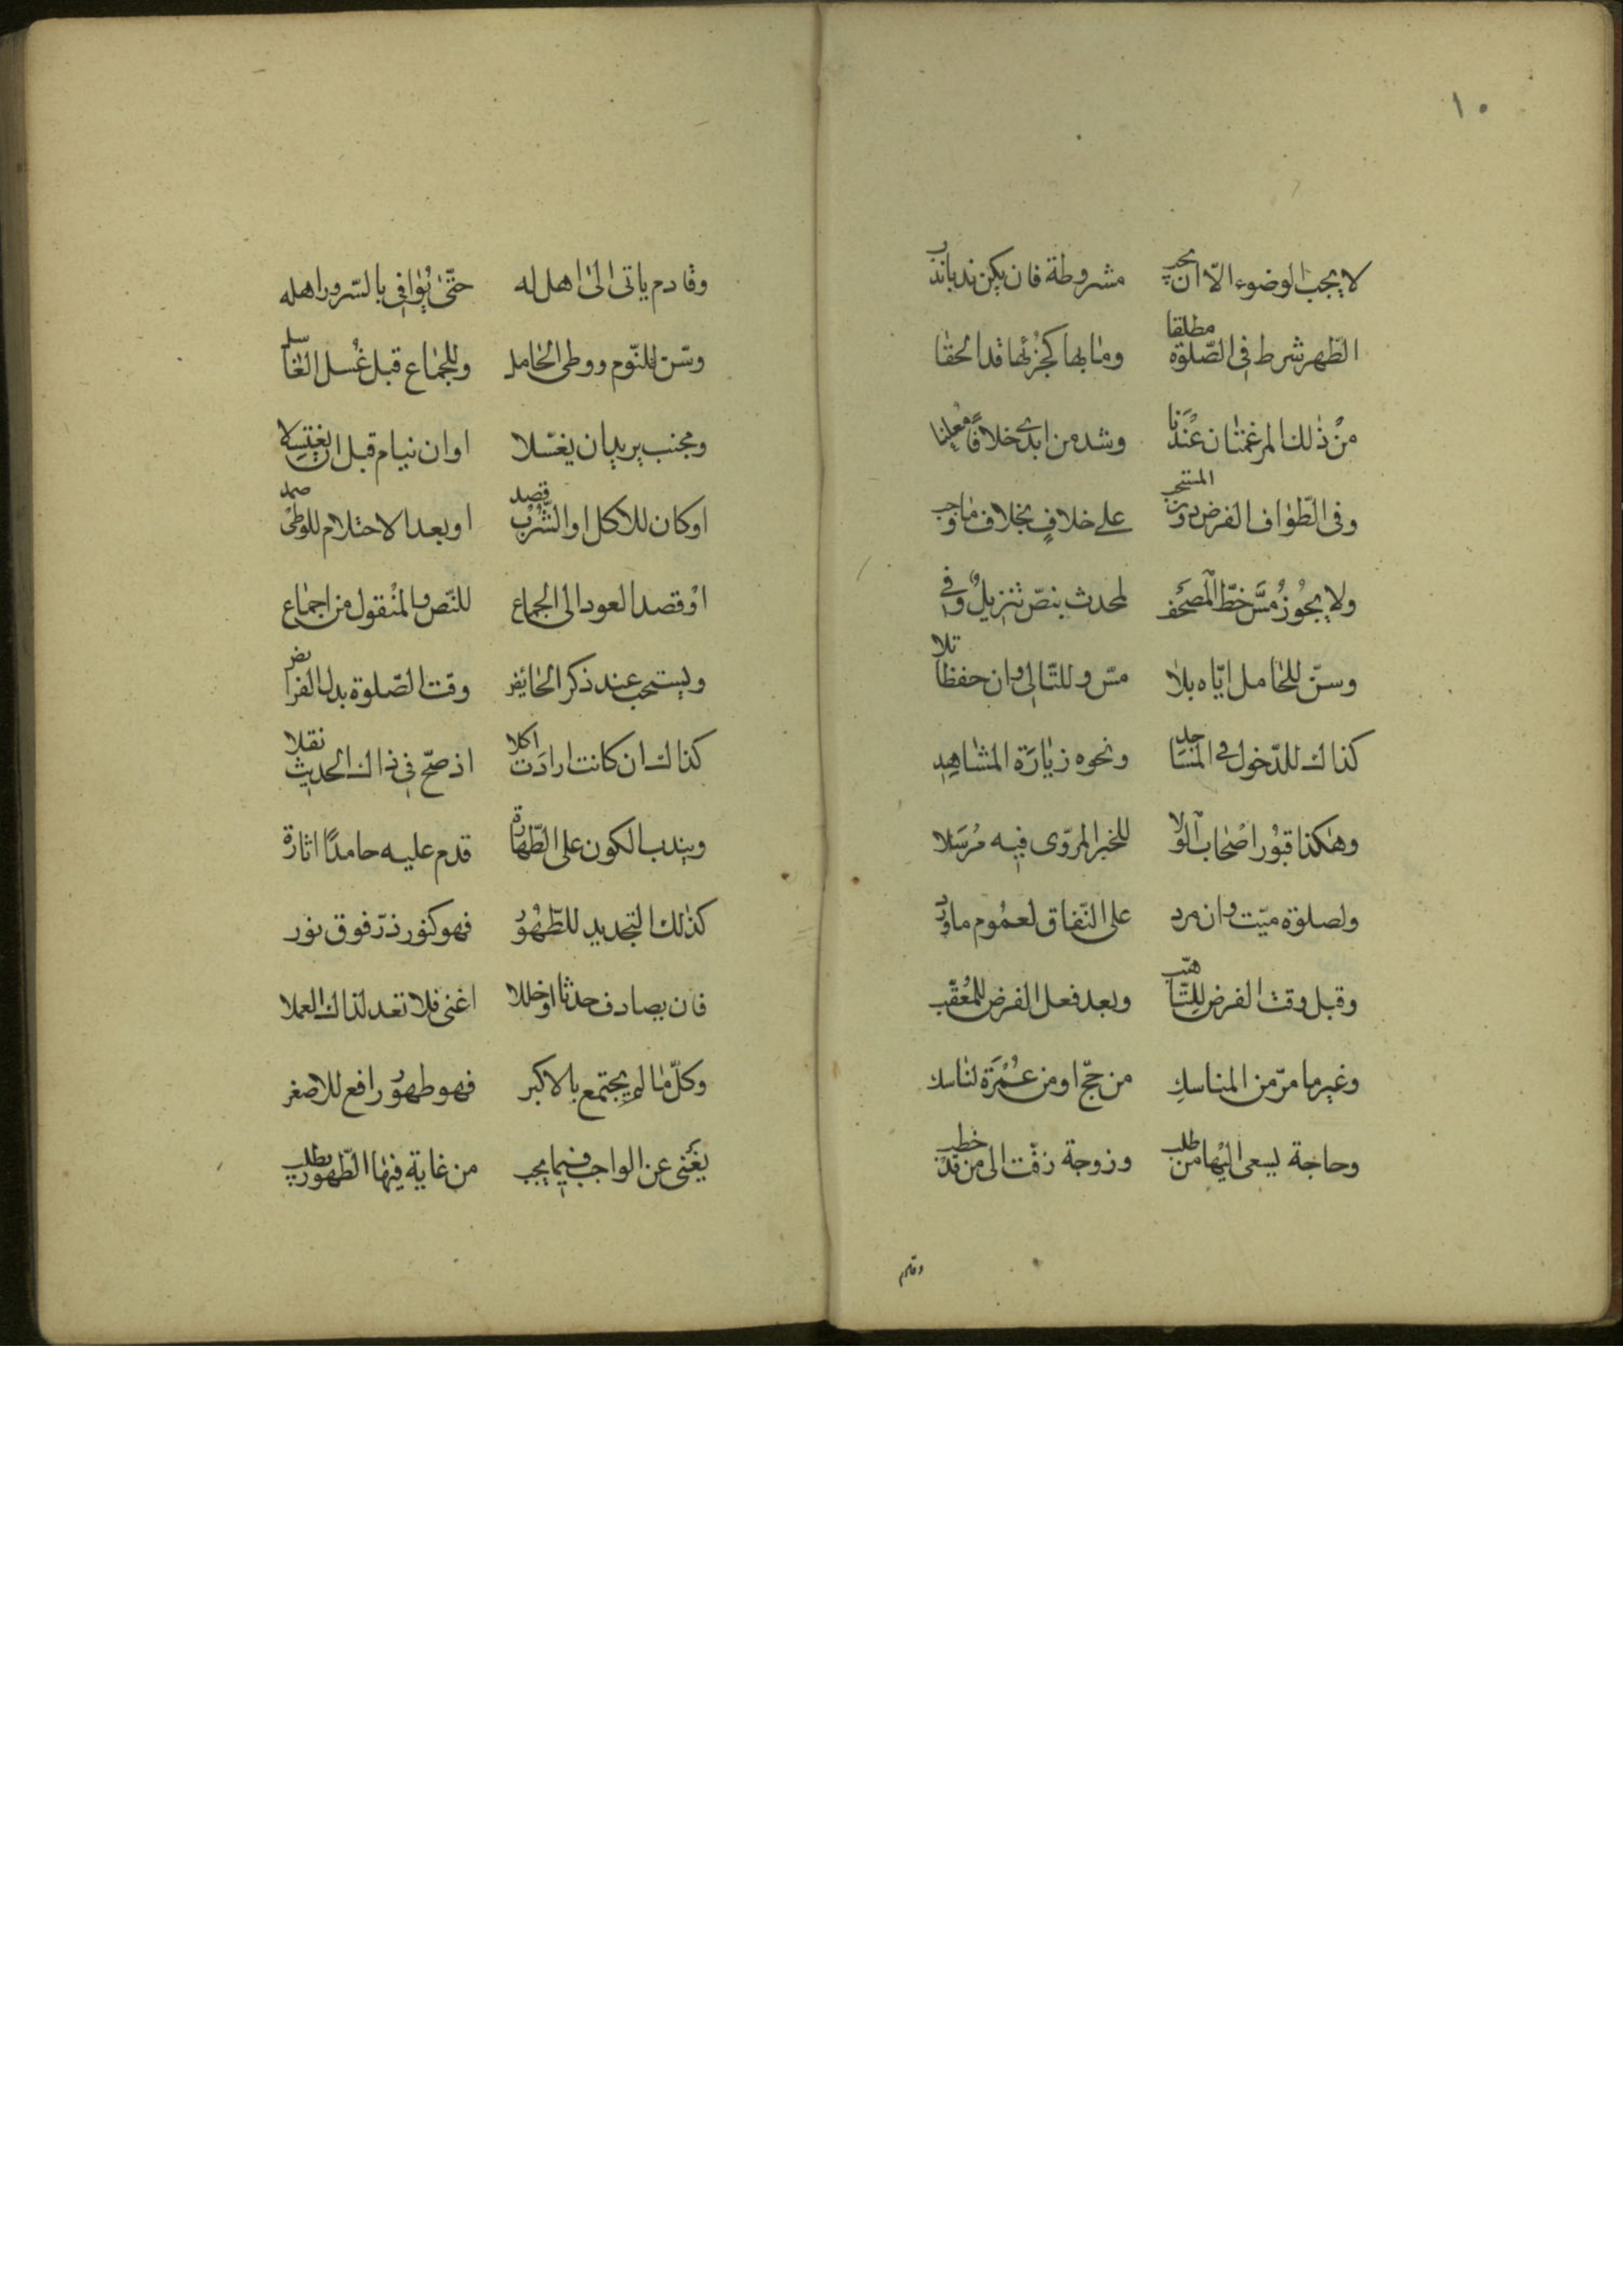 ١٠
لا يجب الوضوء الّا ان يجب مشروطة فان يكن ندبا ندب
الطّهر شرط فى الصّلوة مطلقا ومٰا بها كجزئها قد الحقٰا
منْ ذٰلك المرغمتٰان عنْدَنا وشد من ابدى خلافًا مُعلِنا
وفى الطّوٰاف الفرض دون المستحب على خلافٍ بخلاف مٰا وجب
ولا يجُوزُ مسَّ خطّ الْمصَحَف لمحدث بنصّ تنزيلٌ وفى
وسنّ للحٰامل ايّاه بلٰا مسّ وللتّالى وان حفظا تلا
كذاك للدّخول فى المسَاجد ونحوه زيٰارَة المشٰاهِدِ
وهٰكذا قبُور اصْحٰاب الْولا للخبر المرّوى فيه مُرسَلا
ولصلوة ميّت وان مرد على النّفاق لعمُوم ما ورد
وقبل وقت الفرض للِتّاهّب وبعد فعل الفرض للمُعقّب
وغير ما مرّ من المناسكِ من حجّ او من عُمْرَة لنٰاسك
وحاجة يسعى اليْها من طلب وزوجة زفّت الى من قد خطب
وقادم
وقٰادم ياتى الىٰ اهل له حتّىٰ يُوٰافى بالسّرور اهله
وسّن للنّوم ووطى الحٰامل وللجمٰاع قبل غُسل الغٰاسل
ومجنب يريد ان يغسّلا او ان ينام قبل ان يغتسِلا
او كان للاكل او الشّرْب قصد او بعد الاحتلام للوطىْ صمد
اوْ قصد العود الى الجمٰاع للنّص والمنْقول من اجمٰاع
ويستحب عند ذكر الحٰائض وقت الصّلوة بدل الفرائض
كذاك ان كانت ارادَت اكلا اذ صحّ فى ذاك الحديث نقلا
ويندب الكون على الطّهٰارة قدم عليه حامدًا اثارة
كذٰلك التجديد للطّهُوْر فهو كنور ذرّ فوق نور
فان يصادف حدثا او خللا اغنى فلا تعد لذاك العملا
وكلّ مٰا لم يجتمع بالاكبر فهو طهوُر رافع للاصغر
يغْنى عن الواجب فيما يجب من غاية فيهٰا الطّهور يطلب